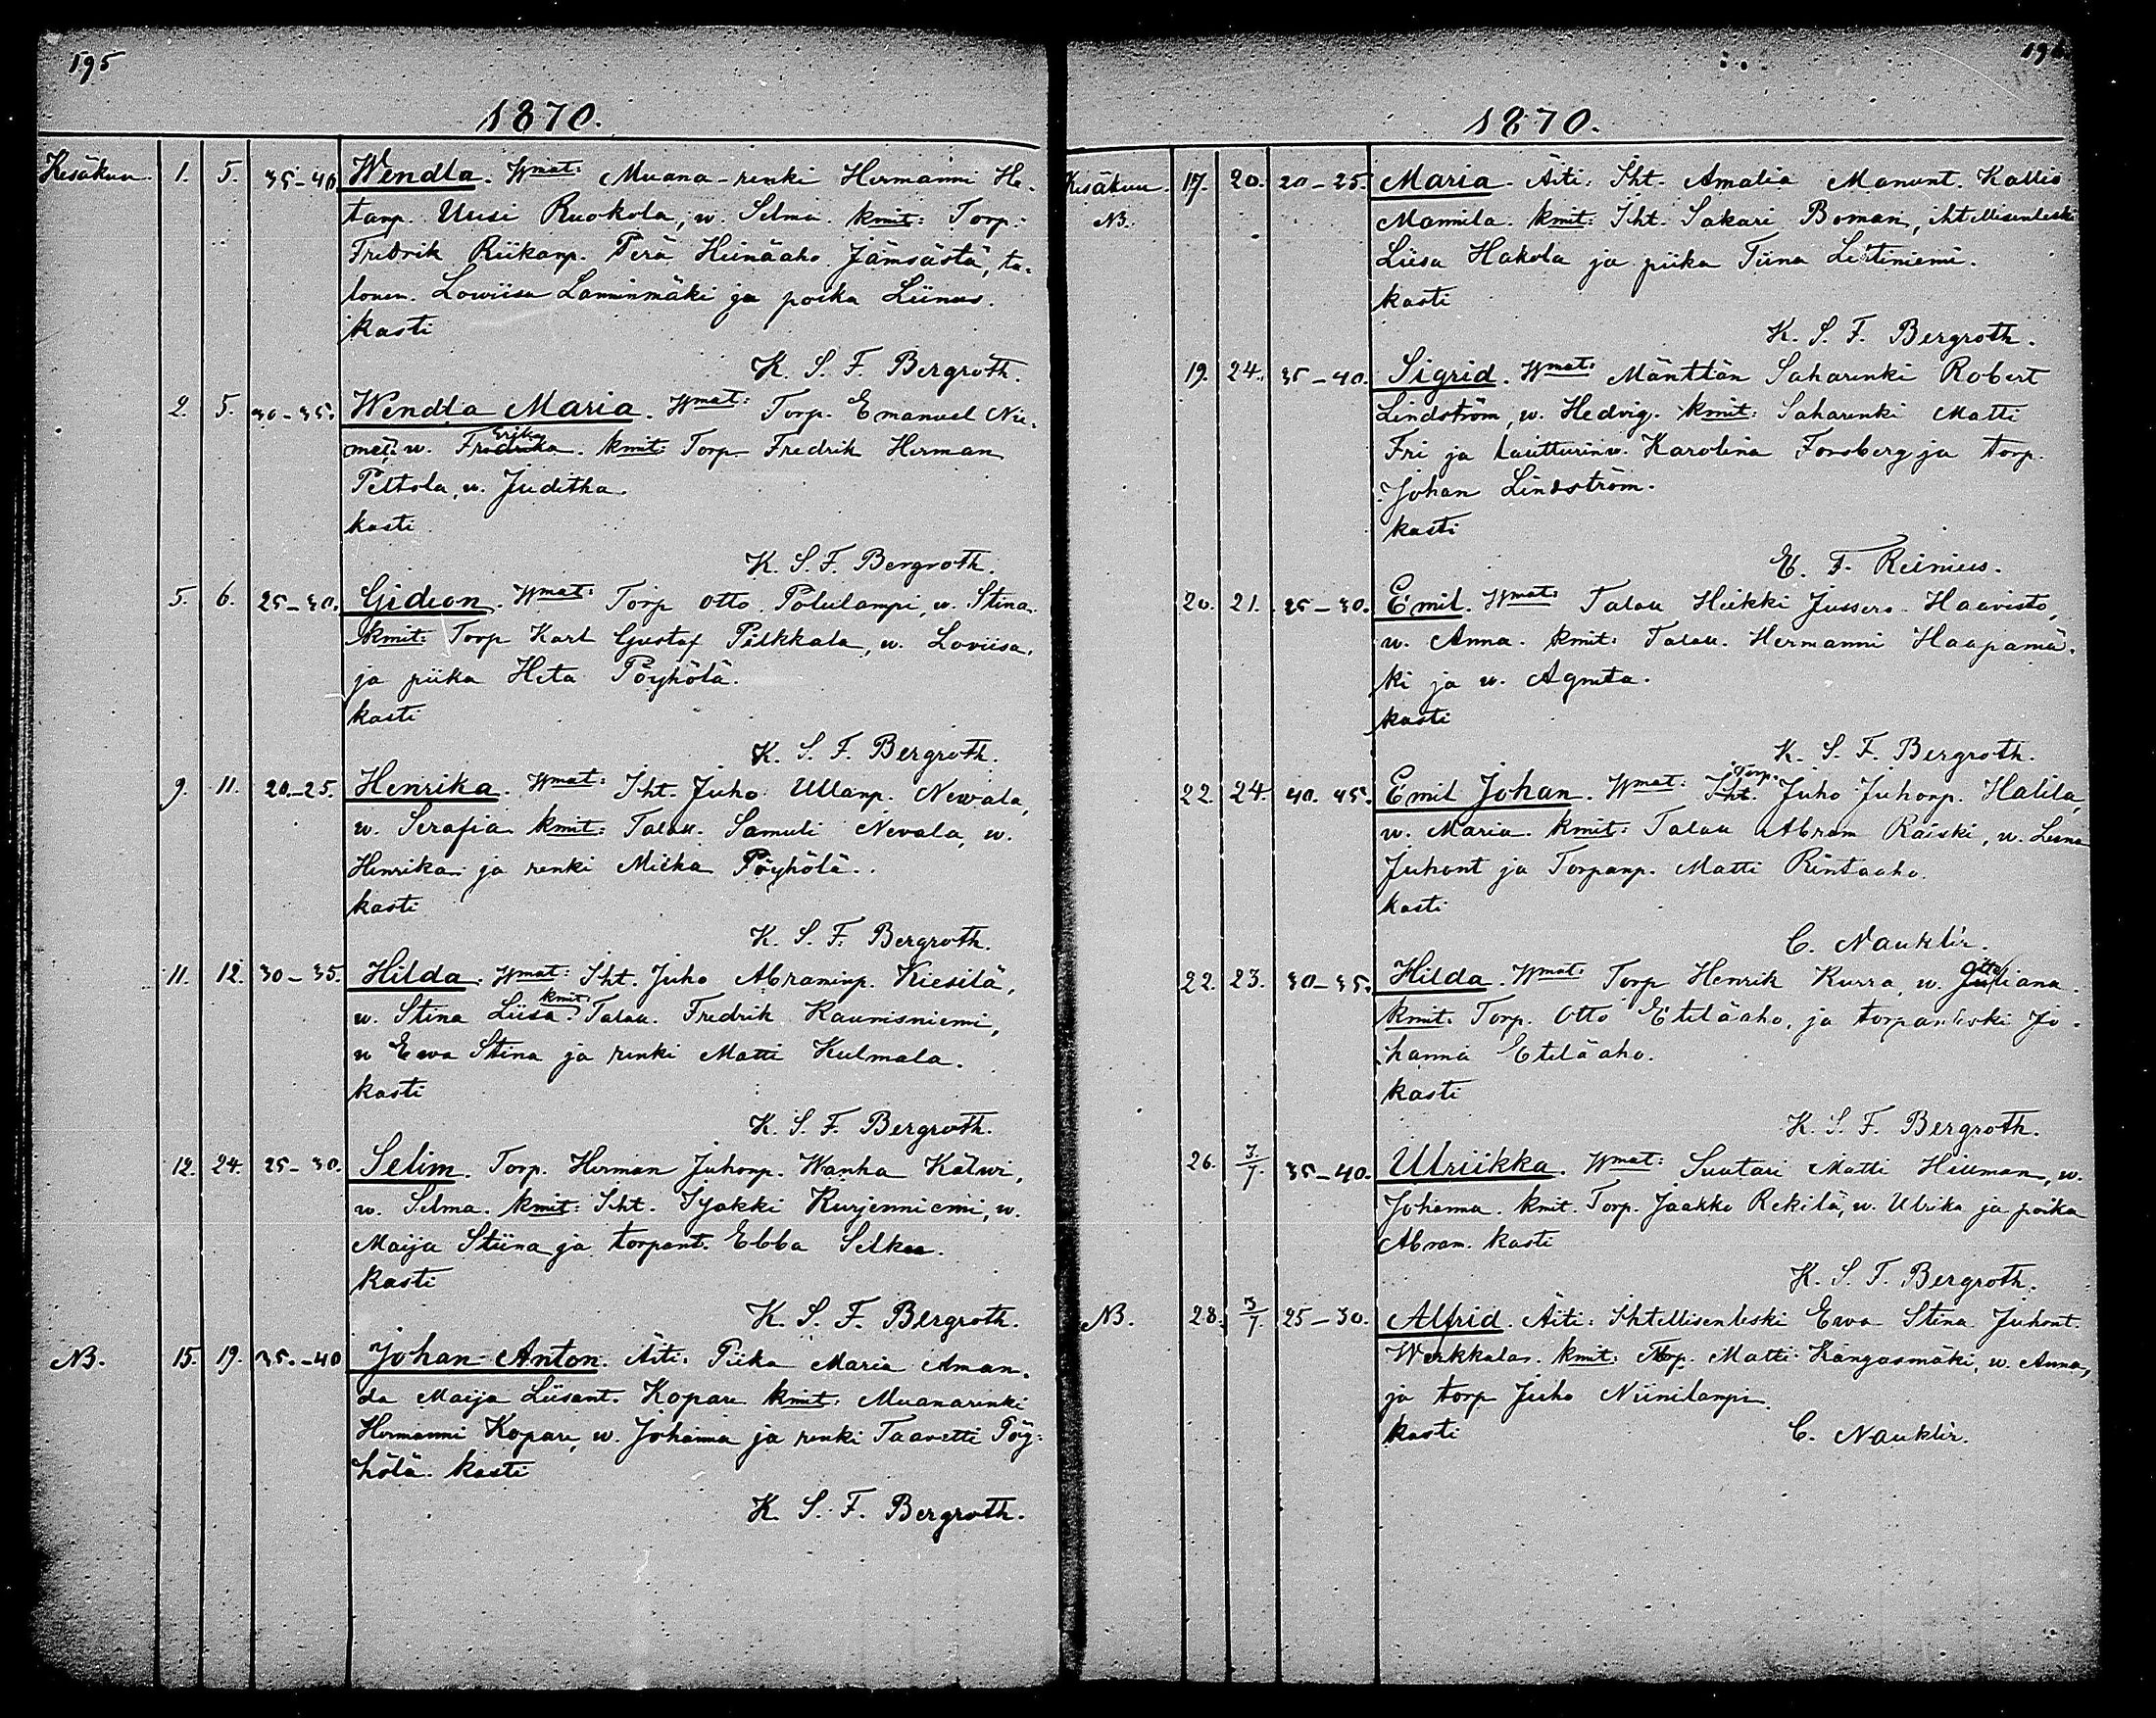 195
1870.
Kesäkuu. 1. 5. 35-40 Wendla. Wmat: Muana-renki Hermanni He-
tanp. Uusi Ruokola, w. Selma. kmit: Torp.
Fredrik Riikanp. Perä Heinäaho Jämsästä, ta-
lonem. Lowiisa Lamminmäki ja poika Liinus.
kasti
K. S. F. Bergroth.
2. 5. 30-35. Wendla Maria. Wmat: Torp. Emanuel Nie-
mei, w. Fredrika Erika. kmit: Torp Fredrik Herman
Peltola, w. Juditha.
kasti
K. S. F. Bergroth.
5. 6. 25-30. Gideon. Wmat: Torp Otto Polulampi, w. Stina.
kmit: Torp Karl Gustaf Pälkkala, w. Loviisa.
ja piika Heta Pöyhölä.
kasti
K. S. F. Bergroth.
9. 11. 20-25. Henrika. Wmat: Iht. Juho Ullanp. Newala,
w. Serafia. kmit: Talau. Samuli Nevala, w.
Henrika ja renki Miska Pöyhölä.
kasti
K. S. F. Bergroth.
11. 12. 30-35. Hilda. Wmat: Iht. Juho Abraminp. Kiesilä,
w. Stina Liisa. kmit: Talau. Fredrik Kaunisniemi,
w Ewa Stina ja renki Matti Kulmala.
kasti
K. S. F. Bergroth.
12. 24. 25-30. Selim. Torp. Herman Juhonp. Wanha Kälwi,
w. Selma. kmit: Iht. Iyakki Kurjenniemi, w.
Maija Stiina ja torpant. Ebba Selkee.
kasti
K. S. F. Bergroth.
NB. 15. 19. 35.-40 Johan Anton. Äiti: Piika Maria Aman-
da Maija Liisant. Kopare kmit: Muanarenki
Hermanni Kopare, w. Johanna ja renki Taavetti Pöy-
hölä. kasti
K. S. F. Bergroth.
1870.
Kesäkuu. 17. 20. 20-25. Maria. Äiti: Iht. Amalia Manunt. Kallio
NB. Mannila. kmit: Iht. Sakari Boman, ihtellisenleski
Liisa Hakola ja piika Tiina Lentiniemi.
kasti
K. S. F. Bergroth.
19. 24. 35-40. Sigrid. Wmat: Mänttän Saharenki Robert
Lindström, w. Hedvig. kmit: Saharenki Matti
Fri ja lautturinw. Karolina Forsberg ja torp.
Johan Lindström.
kasti
E. F. Reinius.
20. 21. 25-30. Emil. Wmat: Talau Heikki Jussero Haavisto,
w. Anna. kmit: Talau. Hermanni Haapamä-
ki ja w. Agneta.
kasti
K. S. F. Bergroth.
22. 24. 40. 45. Emil Johan. Wmat: Iht. Torp. Juho Juhonp. Halila,
w. Maria. kmit: Talau Abram Raiski, w. Leena
Juhont ja Torpanp. Matti Rintaaho.
kasti
C. Nauklér.
22. 23. 30-35. Hilda. Wmat: Torp Henrik Kurra, w. Juliana.
kmit: Torp. Otto Eteläaho, ja torpanleski Jo-
hanna Eteläaho.
kasti
K. S. F. Bergroth.
26. 3/7 35-40. Ulriikka. Wmat: Suutari Matti Hillman, w.
Johanna. kmit. Torp. Jaakko Rekilä, w. Ulrika ja poika
Abram. kasti
K. S. F. Bergroth.
NB. 28. 3/7 25-30. Alfrid. Äiti: Ihtellisenleski Ewa Stina Juhont.
Werkkalas. kmit: Torp. Matti Kangasmäki, w. Anna,
ja torp Juho Niinilampi.
kasti C. Nauklér.